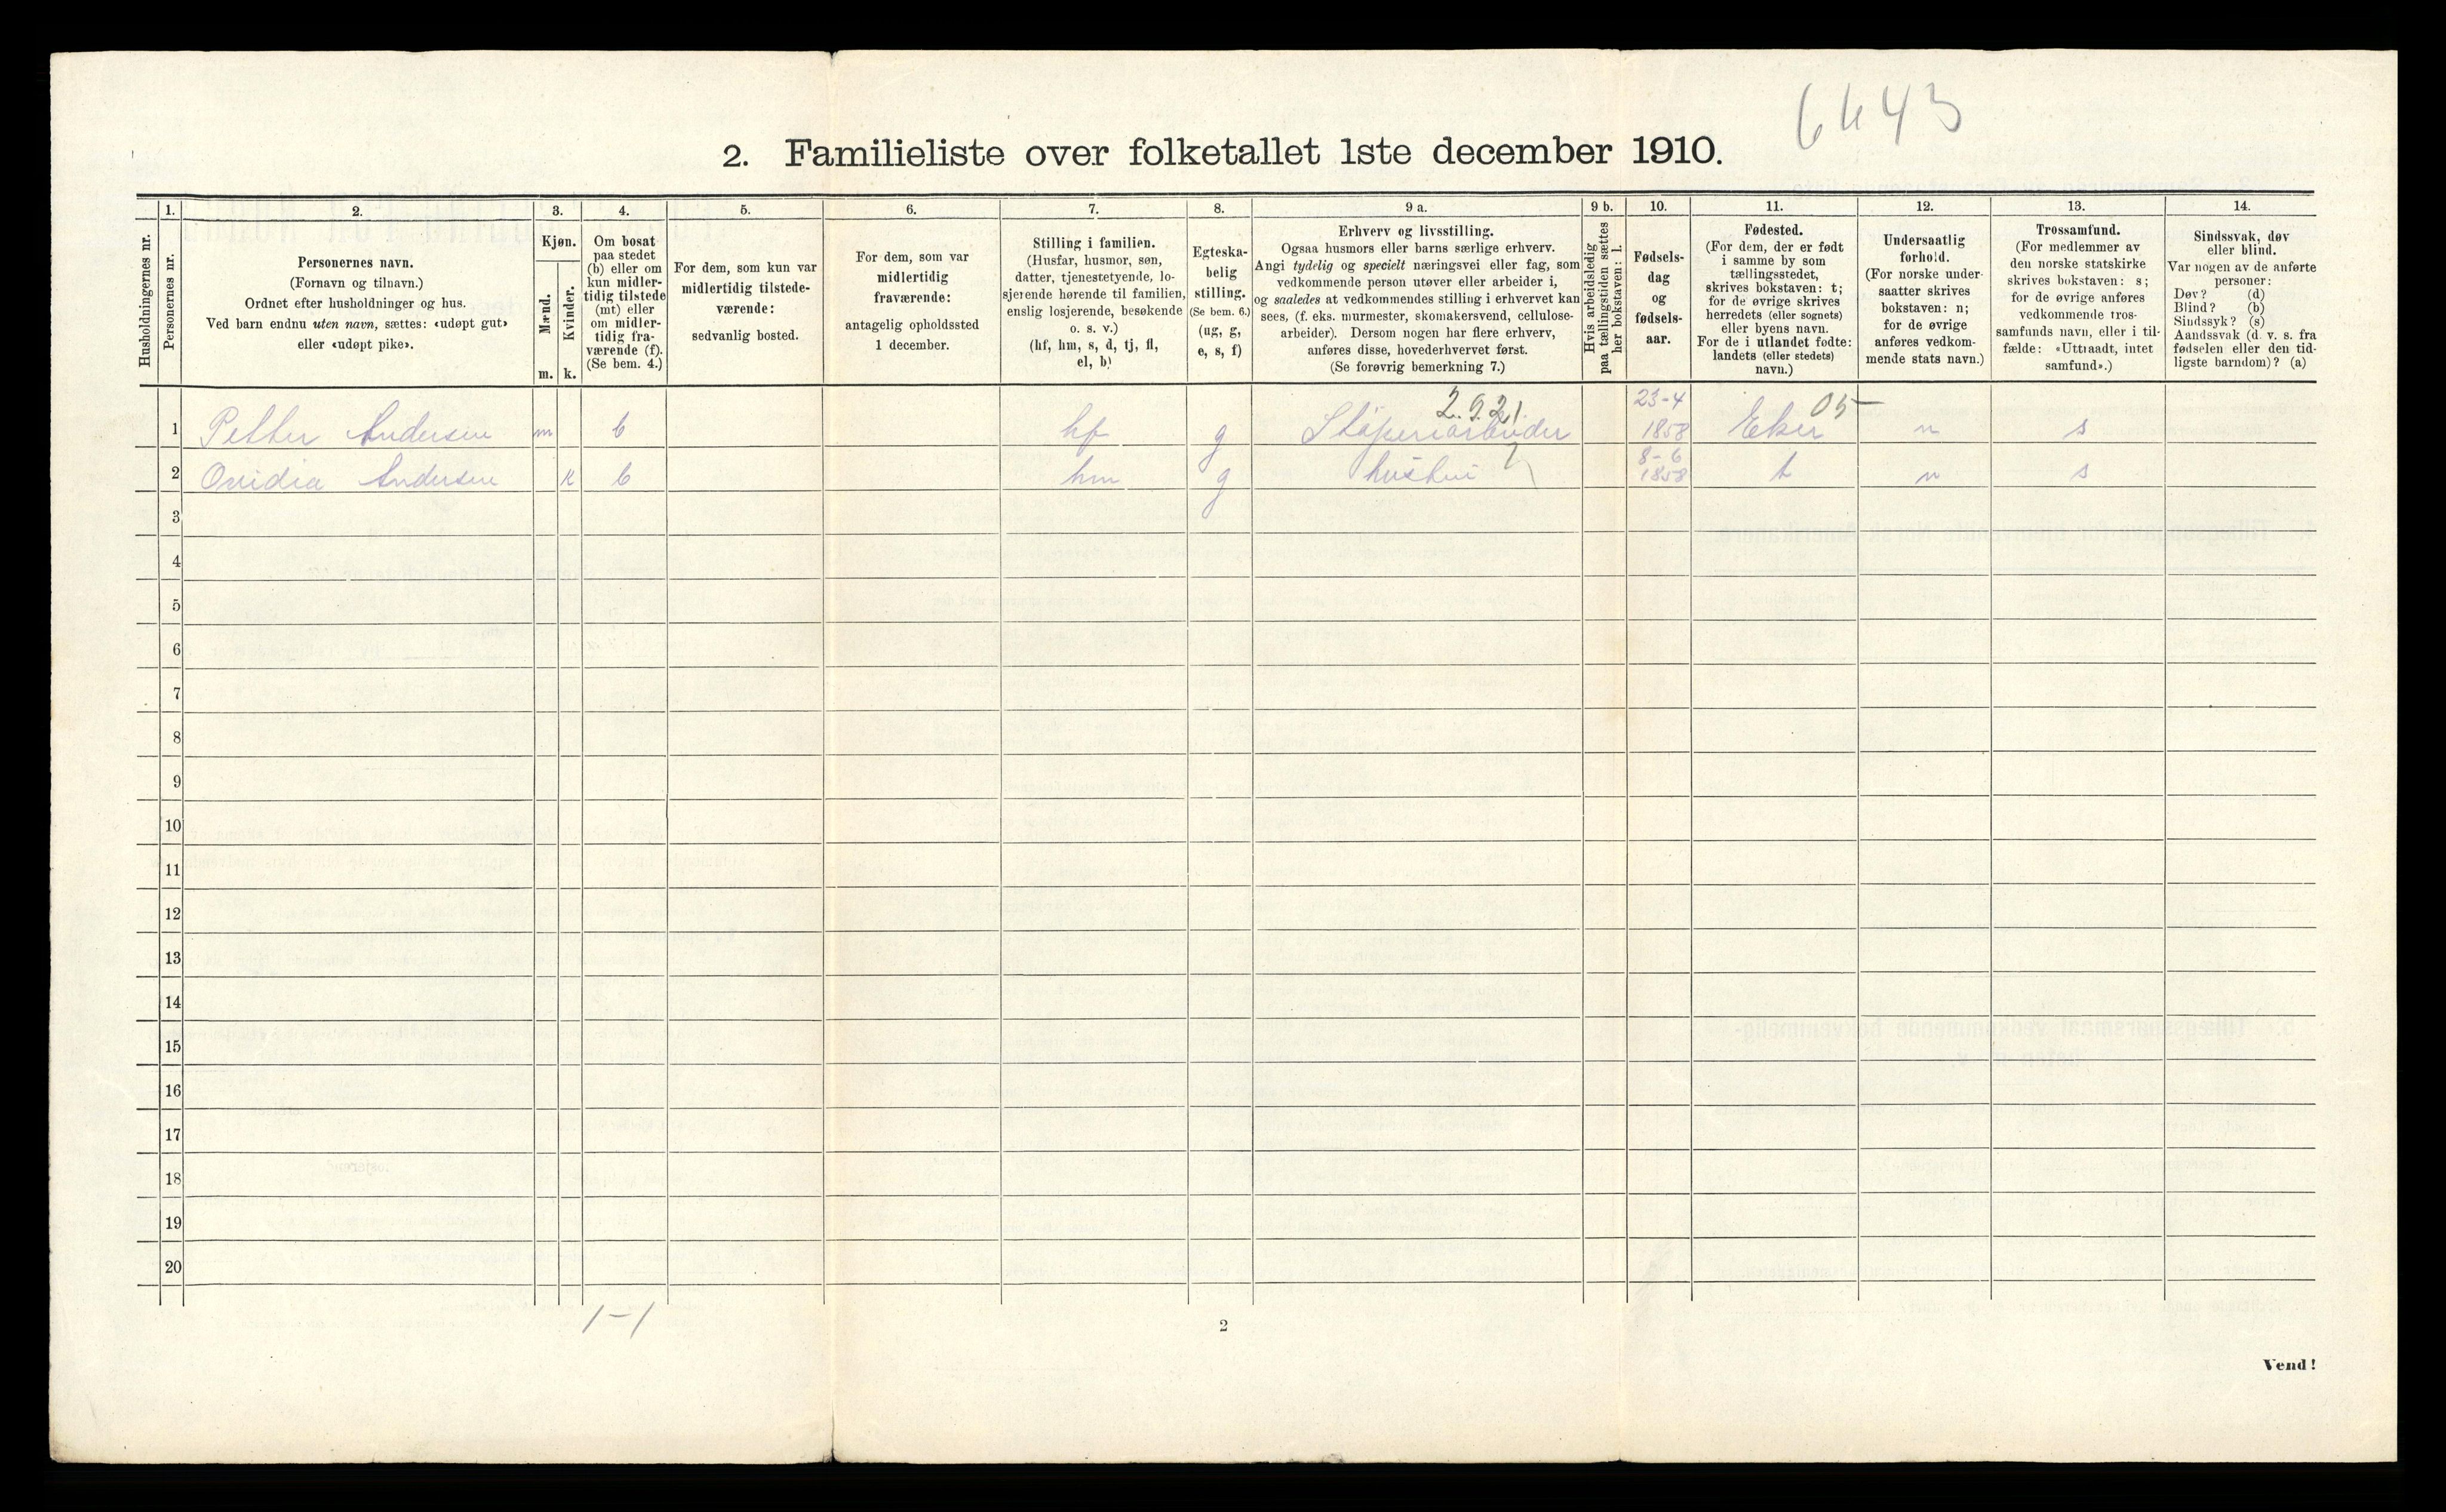 6643
2. Familieliste over folketallet 1ste december 1910.
Husholdningernes nr.
1.
Personernes nr.
2.
Personernes navn.
(Fornavn og tilnavn.)
Ordnet efter husholdninger og hus.
Ved barn endnu uten navn, sættes: «udøpt gut»
eller «udøpt pike».
3.
Kjøn.
Mænd.
m.
Kvinder.
k.
4.
Om bosat
paa stedet
(b) eller om
kun midler-
tidig tilstede
(mt) eller
om midler-
tidig fra-
værende (f).
(Se bem. 4.)
5.
For dem, som kun var
midlertidig tilstede-
værende:
sedvanlig bosted.
6.
For dem, som var
midlertidig
fraværende:
antagelig opholdssted
1 december.
7.
Stilling i familien.
(Husfar, husmor, søn,
datter, tjenestetyende, lo-
sjerende hørende til familien,
enslig losjerende, besøkende
o. s. v.)
(hf, hm, s, d, tj, fl,
el, b)
8.
Egteska-
belig
stilling.
(Se bem. 6.)
(ug, g,
e, s, f)
9 a.
Erhverv og livsstilling.
Ogsaa husmors eller barns særlige erhverv.
Angi tydelig og specielt næringsvei eller fag, som
vedkommende person utøver eller arbeider i,
og saaledes at vedkommendes stilling i erhvervet kan
sees, (f. eks. murmester, skomakersvend, cellulose-
arbeider). Dersom nogen har flere erhverv,
anføres disse, hovederhvervet først.
(Se forøvrig bemerkning 7.)
9 b.
Hvis arbeidsledig
paa tællingstiden sættes
her bokstaven: l.
10.
Fødsels-
dag
og
fødsels-
aar.
11.
Fødested.
(For dem, der er født
i samme by som
tællingsstedet,
skrives bokstaven: t;
for de øvrige skrives
herredets (eller sognets)
eller byens navn.
For de i utlandet fødte:
landets (eller stedets)
navn.)
12.
Undersaatlig
forhold.
(For norske under-
saatter skrives
bokstaven: n;
for de øvrige
anføres vedkom-
mende stats navn.)
13.
Trossamfund.
(For medlemmer av
den norske statskirke
skrives bokstaven: s;
for de øvrige anføres
vedkommende tros-
samfunds navn, eller i til-
fælde: «Uttraadt, intet
samfund».)
14.
Sindssvak, døv
eller blind.
Var nogen av de anførte
personer:
Døv? (d)
Blind? (b)
Sindssyk? (s)
Aandssvak (d. v. s. fra
fødselen eller den tid-
ligste barndom)? (a)
1 Petter Andersen m b hf g Støperiarbeider 23-4 1858 Eker 05 n s
2 Ovidia Andersen k b hm g hustru 8-6 1858 t n s
3
4
5
6
7
8
9
10
11
12
13
14
15
16
17
18
19
20
1-1
2
Vend!